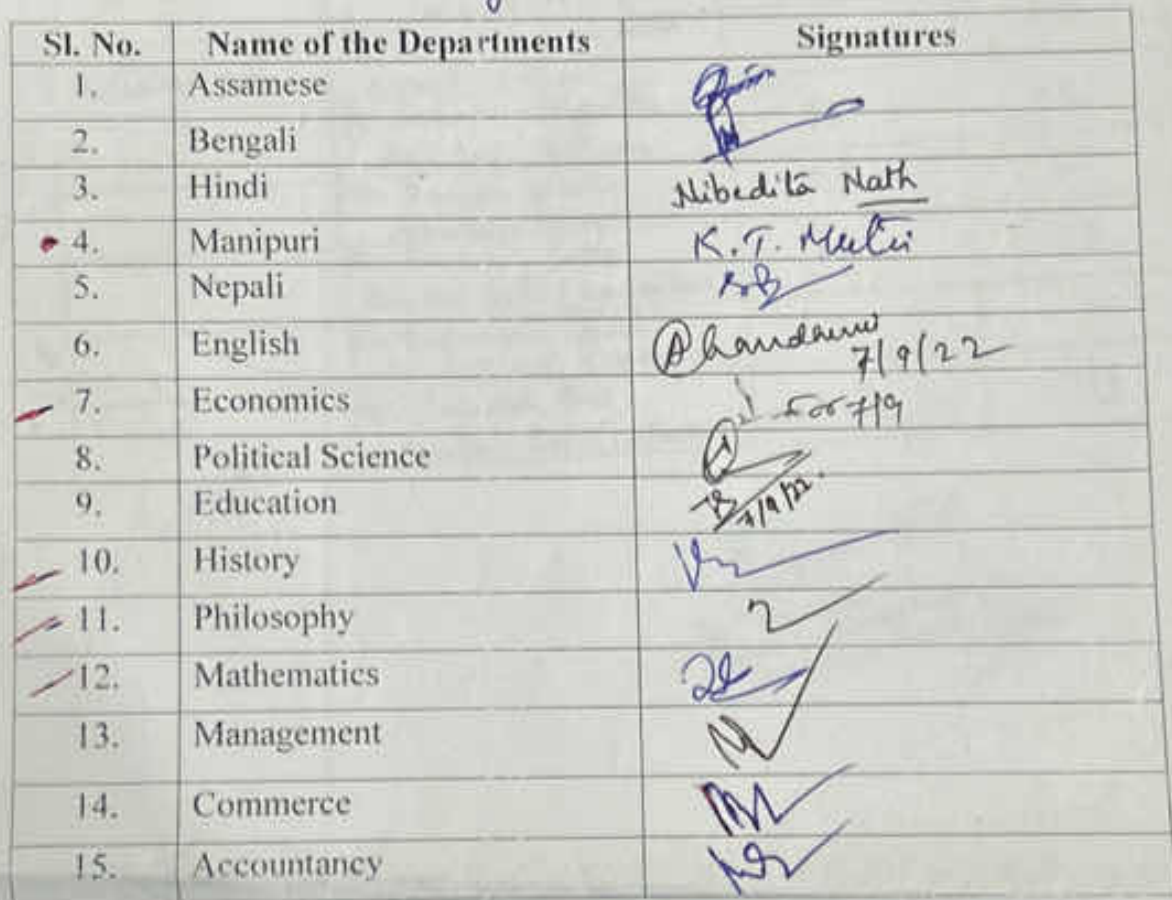 Sl. No. Name of the Departments Signatures
1. Assamese
2. Bengali
3. Hindi Nibedita Nath
4. Manipuri K. T.
5. Nepali
6. English 7/9/22
7. Economics 7/9
8. Political Science
9. Education 7/9/22.
10. History
11. Philosophy
12. Mathematics
13. Management
14. Commerce
15. Accountancy